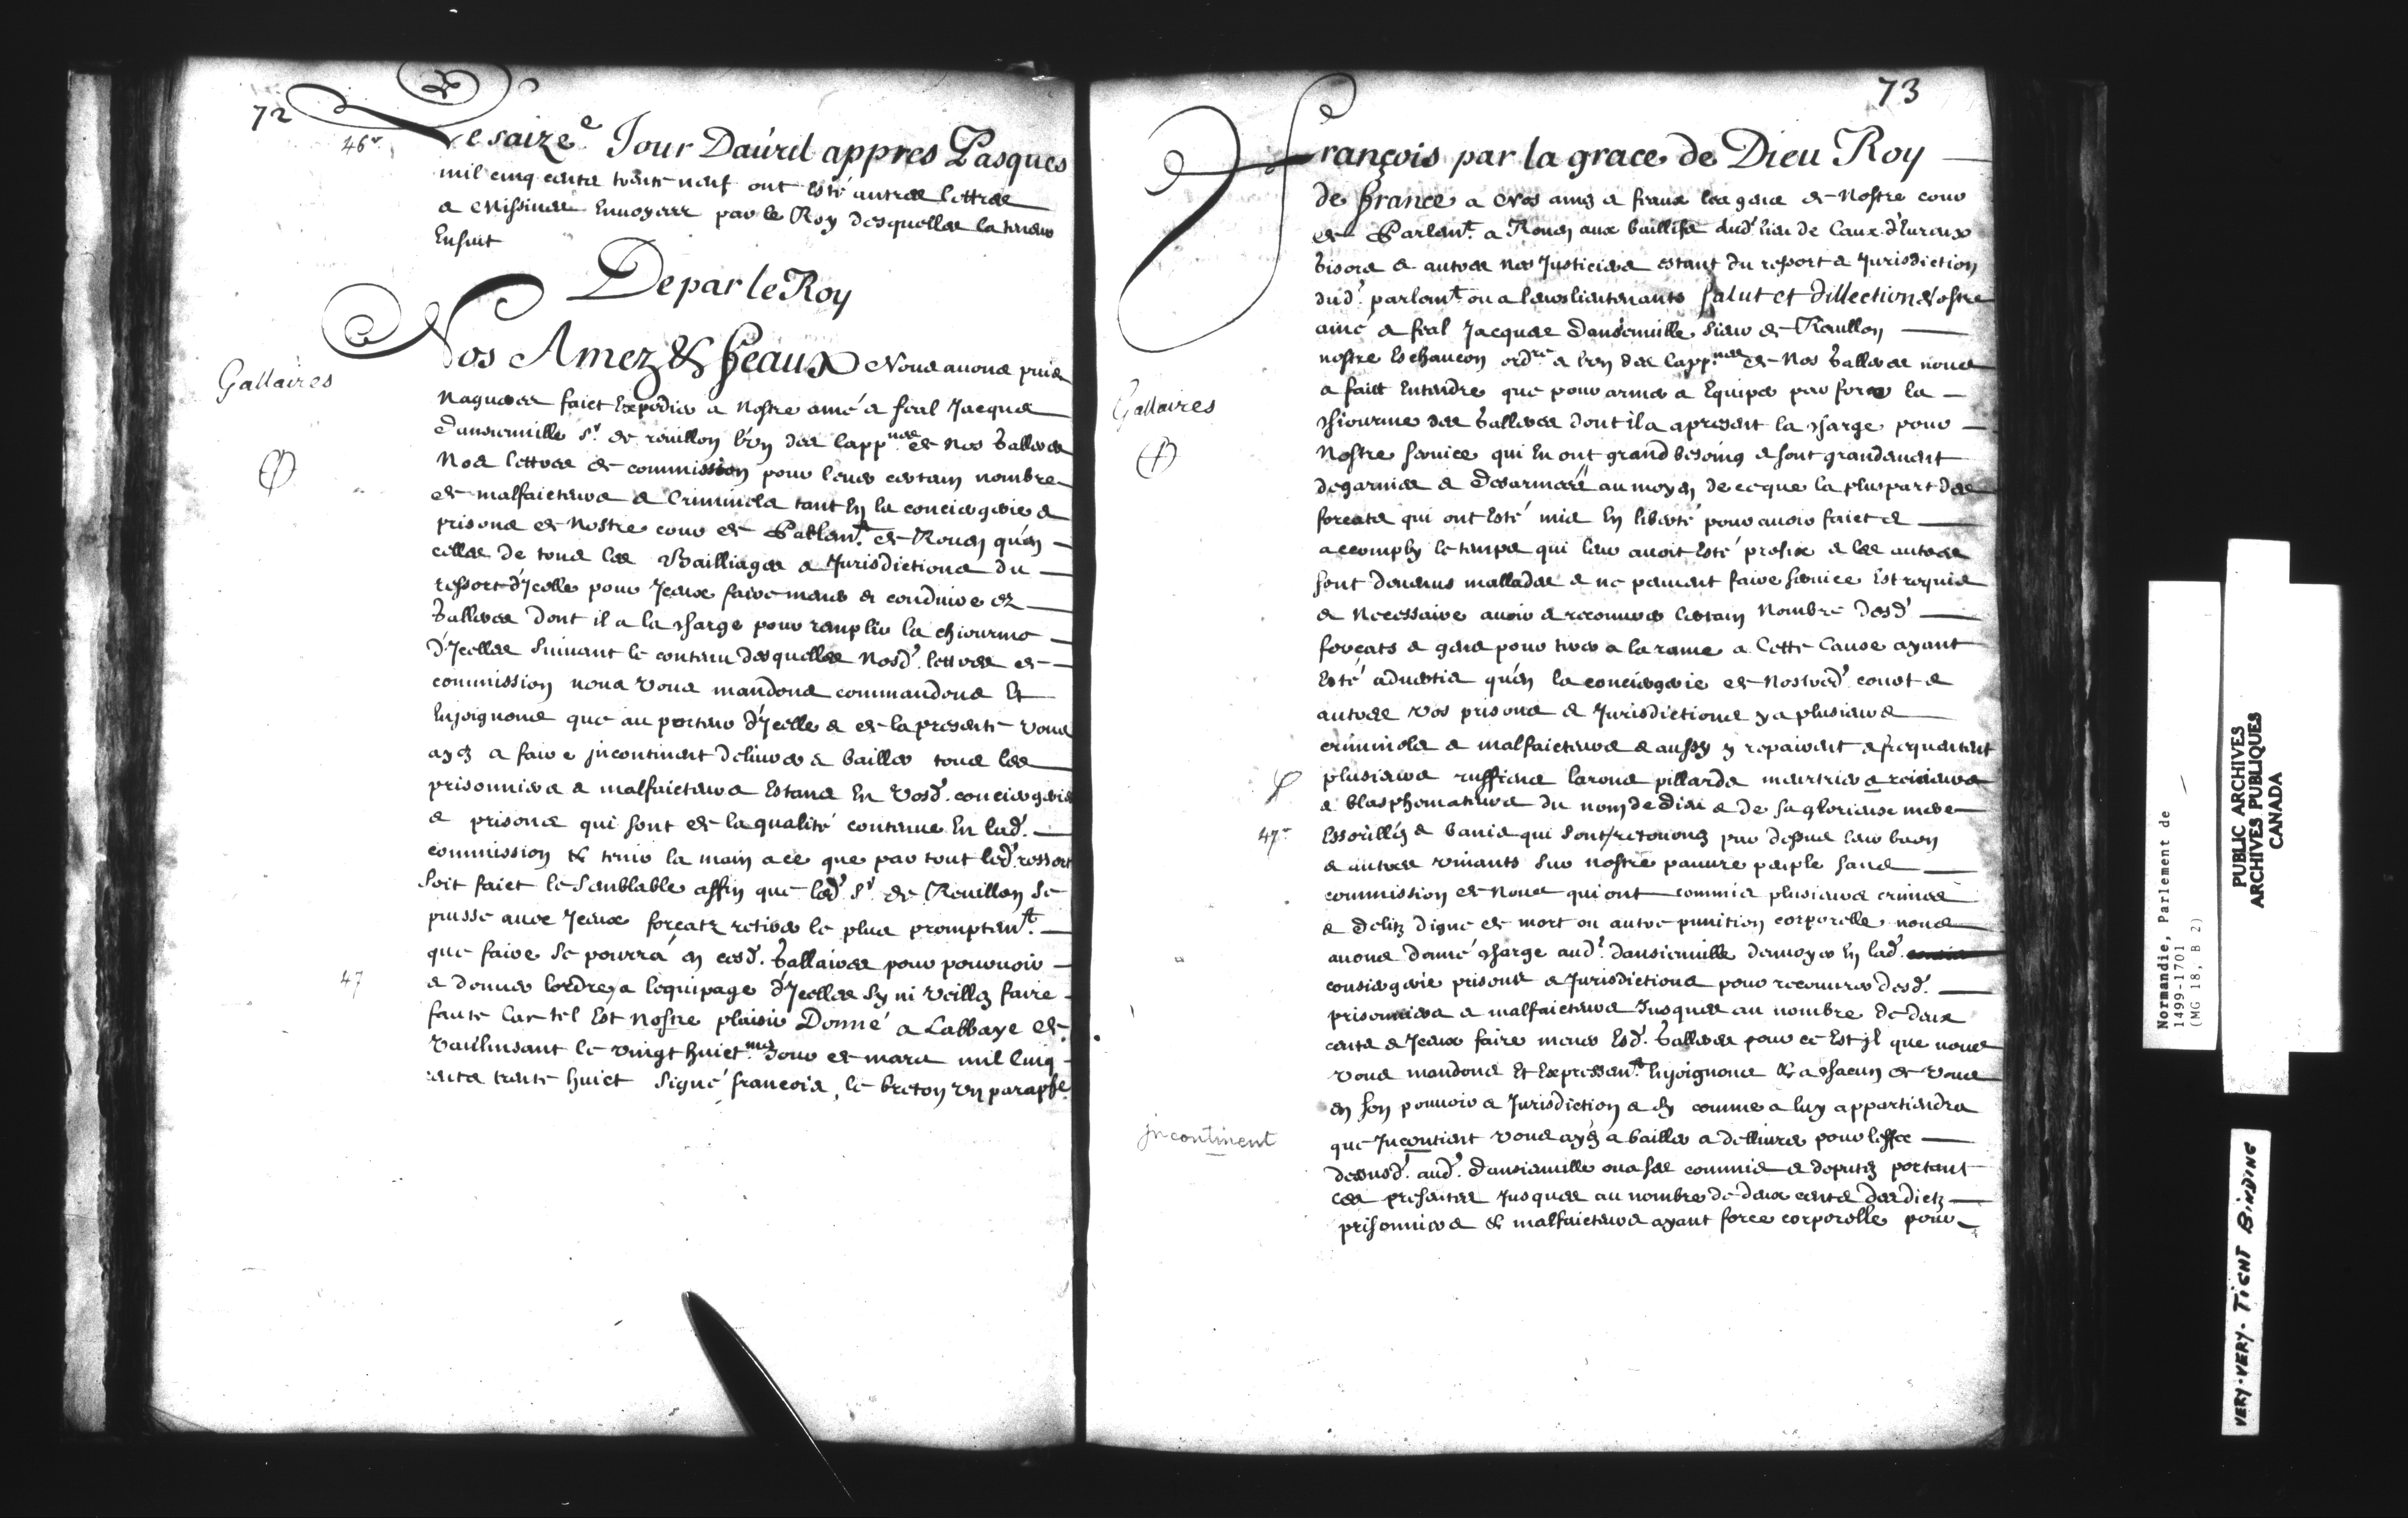 72
46v.
Le saize.e Jour Dauril appres Pasques
mil cinq cents trente neuf ont esté autres lettres
& missiues Enuoyees par le Roy desquelles la teneur
Ensuit
De par le Roy
Nos Amez & feaux Nous auons puis
Gallaires
Nagueres faict Expedier a Nostre amé & feal Jacques
Dansieruille sr. de reuillon l'un des capp.nes de Nos Galleres
Nos lettres de commission pour leuer certain nombre
de malfaicteurs & Criminels tant En la conciergerie &
prisons de Nostre cour de Parlemt. de Rouen qu'en
celles de tous les Bailliages & Jurisdictions du
ressort d'Jcelle pour Jceux faire mener & conduire ez
Galleres dont il a la charge pour remplir la chiourme
d'Jcelles Suiuant le contenu desquelles Nosd. lettres de
commission nous vous mandons commandons Et
Enjoignons que au porteur d'Jcelle & de la presente vous
ayez a faire jncontinent deliurer & bailler tous les
prisonniers & malfaicteurs Estans En vosd. conciergerie
& prisons qui sont de la qualité contenue En lad.
commission & tenir la main a ce que par tout led. ressort
soit faict le Semblable affin que led. sr. de Reuillon se
puisse auec Jceux forcatz retirer le plus promptemt.
que faire se pourra en cesd. Gallaires pour pouruoir
47
& donner lordre a lequipage d'Jcelles Sy ni veillez faire
faute Car tel Est Nostre plaisir Donné a Labbaye de
Vauluisant le vingt huict.me Jour de mars mil cinq
cents trente huict Signé francois, le breton vn paraphe
73
François par la grace de Dieu Roy
de France a Nos amez & feaux les gens de Nostre cour
de Parlemt. a Rouen aux baillifs dud. lieu de Caux d'Eureux
Gisors & autres nos Justiciers estant du ressort & Jurisdiction
dud. parlemt. ou a leurs lieutenants Salut et dillection Nostre
amé & feal Jacques Dansieruille Sieur de Reuillon
nostre Eschancon ordre. & l'un des capp.nes de Nos Galleres nous
Gallaires
a faict Entendre que pour armer & Equiper par force la
chiourme des Galleres dont il a apresent la charge pour
Nostre seruice qui En ont grand besoing & sont grandement
degarnies & desarmées au moyen de ce que la pluspart des
forcats qui ont Esté mis En liberté pour auoir faict &
accomply le temps qui leur auoit Esté prefix & les autres
sont deuenus mallades & ne peuuent faire seruice Est requis
& Necessaire auoir & recouurer certain Nombre desd.
forcats & gens pour tirer a la rame a Cette Cause ayant
Esté aduertis qu'en la conciergerie de Nostred. court &
autres vos prisons & Jurisdictions y a plusieurs
criminels & malfaicteurs & aussy y repairent & frequentent
plusieurs ruffiens larons pillards meurtriers & reinieurs
& blasphemateurs du nom de Dieu & de sa glorieuse mere
47v
Essorillés & banis qui sont retournez par dessus leur ban
& autres viuants sur nostre pauure peuple sans
commission de Nous qui ont commis plusieurs crimes
& delitz digne de mort ou autre punition corporelle nous
auons donné charge aud. dansieruille denuoyer En lad.
consiergerie prisons & Jurisdictions pour recouurer desd.
prisonniers & malfaicteurs Jusques au nombre de deux
cents & Jceux faire mener Esd. Galleres pour ce Est jl que nous
vous mandons Et Expressemt. Enjoignons & a chacun de vous
en son pouuoir & Jurisdiction & sy comme a luy appartiendra
jncontinent
que Jncontient vous ayez a bailler & delliurer pour leffce
dessusd. aud. dansieruille ou a ses commis & deputez portant
ces presentes Jusques au nombre de deux cents desdictz
prisonniers & malfaicteurs ayant force corporelle pour
Normandie, Parlement de
1499-1701
(MG 18, B 2)
PUBLIC ARCHIVES
ARCHIVES PUBLIQUES
CANADA
VERY-VERY-TIGHT BINDING